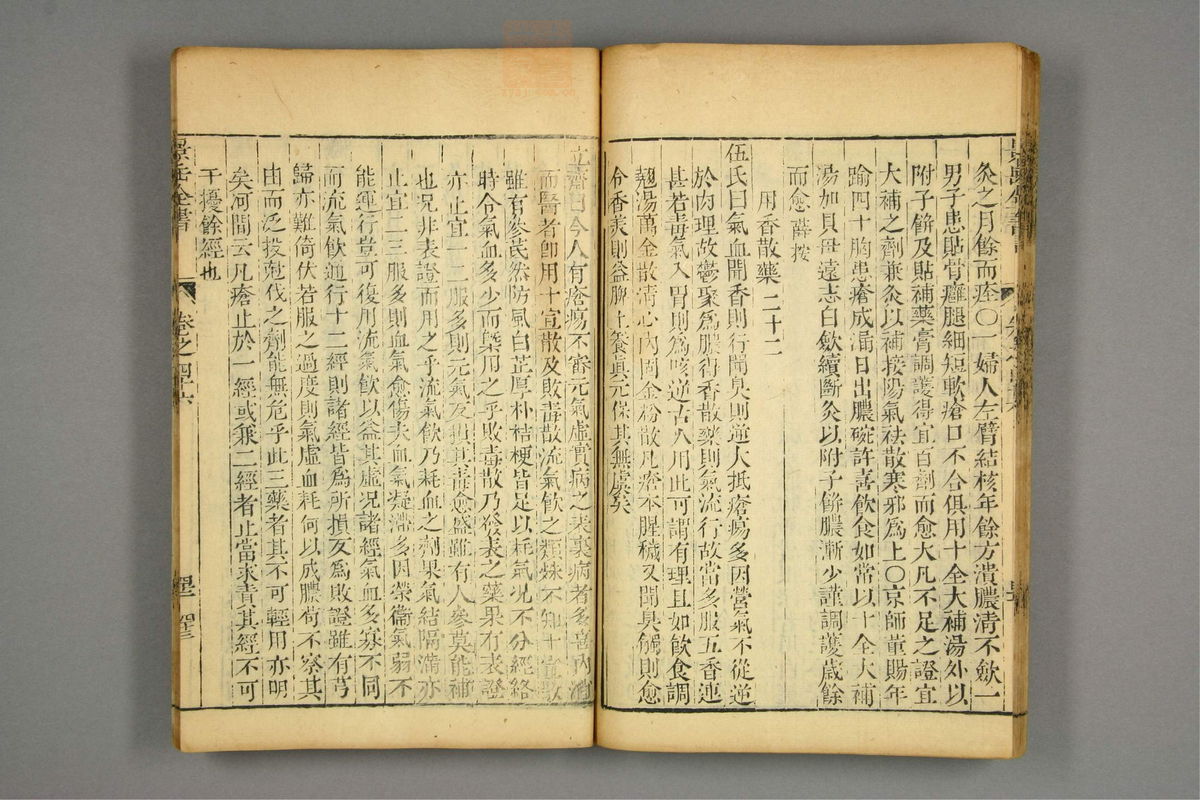 灸之月餘而痊〇一婦人左臂結核年餘方潰膿清不歛一
男子患貼骨癰腿細短軟瘡口不合俱用十全大補湯外以
附子餅及貼補藥膏調護得宜百劑而愈大凡不足之證宜
大補之劑兼灸以補接陽氣祛散寒邪為上〇京師董賜年
踰四十胸患瘡成漏日出膿碗許喜飲食如常以十全大補
湯加貝母遠志白歛續斷灸以附子餅膿漸少謹調護歲餘
而愈薛按
用香散藥二十二
伍氏曰氣血聞香則行聞臭則逆大抵瘡瘍多因營氣不從逆
於肉理故鬱聚為膿得香散藥則氣流行故當多服五香連
翹湯萬金散清心內固金粉散凡瘡本腥穢又聞臭觸則愈
甚若毒氣入胃則為咳逆古人用此可謂有理且如飲食調
令香美則益脾土養真元保其無虞矣
立齋曰今人有瘡瘍不審元氣虛實病之表裏病者多喜內消
而醫者卽用十宣散及敗毒散流氣飲之類殊不知十宣散
雖有參芪然防風白芷厚朴桔梗皆足以耗氣况不分經絡
時令氣血多少而槩用之乎敗毒散乃發表之藥果有表證
亦止宜一二服多則元氣反損其毒愈盛雖有人參莫能補
也况非表證而用之乎流氣飲乃耗血之劑果氣結隔滿亦
止宜二三服多則血氣愈傷夫血氣凝滯多因榮衞氣弱不
能運行豈可復用流氣飲以益其虛况諸經氣血多寡不同
而流氣飲通行十二經則諸經皆為所損反為敗證雖有芎
歸亦難倚伏若服之過度則氣虛血耗何以成膿苟不察其
由而泛投尅伐之劑能無危乎此三藥者其不可輕用亦明
矣河間云凡瘡止於一經或兼二經者止當求責其經不可
干擾餘經也
景岳全書
卷之四十六